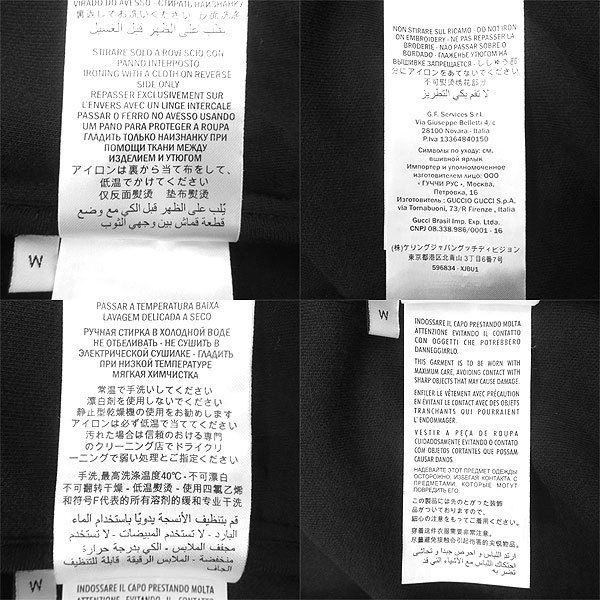 VIRADO DO AVESSO - СТИРАТЬ НАИЗНАНКУ
裏返してお洗いください
يقلب على الظهر قبل الغسيل
STIRARE SOLO A ROVESCIO CON
PANNO INTERPOSTO
IRONING WITH A CLOTH ON REVERSE
SIDE ONLY
REPASSER EXCLUSIVEMENT SUR
L'ENVERS AVEC UN LINGE INTERCALE
PASSAR O FERRO NO AVESSO USANDO
UM PANO PARA PROTEGER A ROUPA
ГЛАДИТЬ ТОЛЬКО НАИЗНАНКУ ПРИ
ПОМОЩИ ТКАНИ МЕЖДУ
ИЗДЕЛИЕМ И УТЮГОМ
アイロンは裏から当て布をして、
低温でかけてください
仅反面熨烫 垫布熨烫
يُلب على الظهر قبل الكي مع وضع
قطعة قماش بين وجهي الثوب
W
NON STIRARE SUL RICAMO - DO NOT IRON
ON EMBROIDERY - NE PAS REPASSER LA
BRODERIE - NÃO PASSAR SOBRE O
BORDADO - ГЛАЖЕНЬЕ УТЮГОМ НА
ВЫШИВКЕ ЗАПРЕЩАЕТСЯ - ししゅう部
分にアイロンをあてないでください
不可熨烫绣花部分
لا تقم بكي التطريز
G.F. Services S.r.l.
Via Giuseppe Belletti 4/c
28100 Novara - Italia
P.Iva 13364840150
Символы по уходу: см.
вшивной ярлык
Импортер и уполномоченное
изготовителем лицо: ООО
«ГУЧЧИ РУС», Москва,
Петровка, 16
Изготовитель: GUCCIO GUCCI S.p.A.
via Tornabuoni, 73/R Firenze, Italia
Gucci Brasil Imp. Exp. Ltda.
CNPJ 08.338.986/0001 - 16
(株)ケリングジャパングッチディビジョン
東京都港区北青山3丁目6番7号
596834 - XJBU1
PASSAR A TEMPERATURA BAIXA
LAVAGEM DELICADA A SECO
РУЧНАЯ СТИРКА В ХОЛОДНОЙ ВОДЕ
НЕ ОТБЕЛИВАТЬ - НЕ СУШИТЬ В
ЭЛЕКТРИЧЕСКОЙ СУШИЛКЕ - ГЛАДИТЬ
ПРИ НИЗКОЙ ТЕМПЕРАТУРЕ
МЯГКАЯ ХИМЧИСТКА
常温で手洗いしてください
漂白剤を使用しないでください
静止型乾燥機の使用をお勧めします
アイロンは必ず低温で当ててください
汚れた場合は信頼のおける専門
のクリーニング店でドライクリ
ーニングで弱い処理とご指定ください
手洗,最高洗涤温度40℃ - 不可漂白
不可翻转干燥 - 低温熨烫 - 使用四氯乙烯
和符号F代表的所有溶剂的缓和专业干洗
قم بتنظيف الأنسجة يدويًا باستخدام الماء
البارد - لا تستخدم المبيضات - لا تستخدم
مجفف الملابس - الكي بدرجة حرارة
منخفضة - الملابس الرقيقة قابلة للتنظيف
الجاف
W
INDOSSARE IL CAPO PRESTANDO MOLTA
ATTENZIONE EVITANDO IL CONTATTO
W
INDOSSARE IL CAPO PRESTANDO MOLTA
ATTENZIONE EVITANDO IL CONTATTO
CON OGGETTI CHE POTREBBERO
DANNEGGIARLO.
THIS GARMENT IS TO BE WORN WITH
MAXIMUM CARE, AVOIDING CONTACT WITH
SHARP OBJECTS THAT MAY CAUSE DAMAGE.
ENFILER LE VÊTEMENT AVEC PRÉCAUTION
EN EVITANT LE CONTACT AVEC DES OBJETS
TRANCHANTS QUI POURRAIENT
L'ENDOMMAGER.
VESTIR A PEÇA DE ROUPA
CUIDADOSAMENTE EVITANDO O CONTATO
COM OBJETOS CORTANTES QUE POSSAM
CAUSAR DANOS.
НАДЕВАЙТЕ ЭТОТ ПРЕДМЕТ ОДЕЖДЫ
ОСТОРОЖНО, ИЗБЕГАЯ КОНТАКТА С
ПРЕДМЕТАМИ, КОТОРЫЕ МОГУТ
ПОВРЕДИТЬ ЕГО.
この製品には先のとがった装飾
品がついておりますので、
細心の注意をもってご着用ください。
穿着这件衣服需要非常注意。
尽量避免接触会引起伤害的尖锐物品。